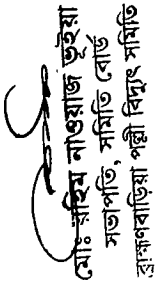 মোঃ রহিম নাওয়াজ ভূইয়া
সভাপতি, সমিতি বোর্ড
ব্রাহ্মণবাড়িয়া পল্লী বিদ্যুৎ সমিতি